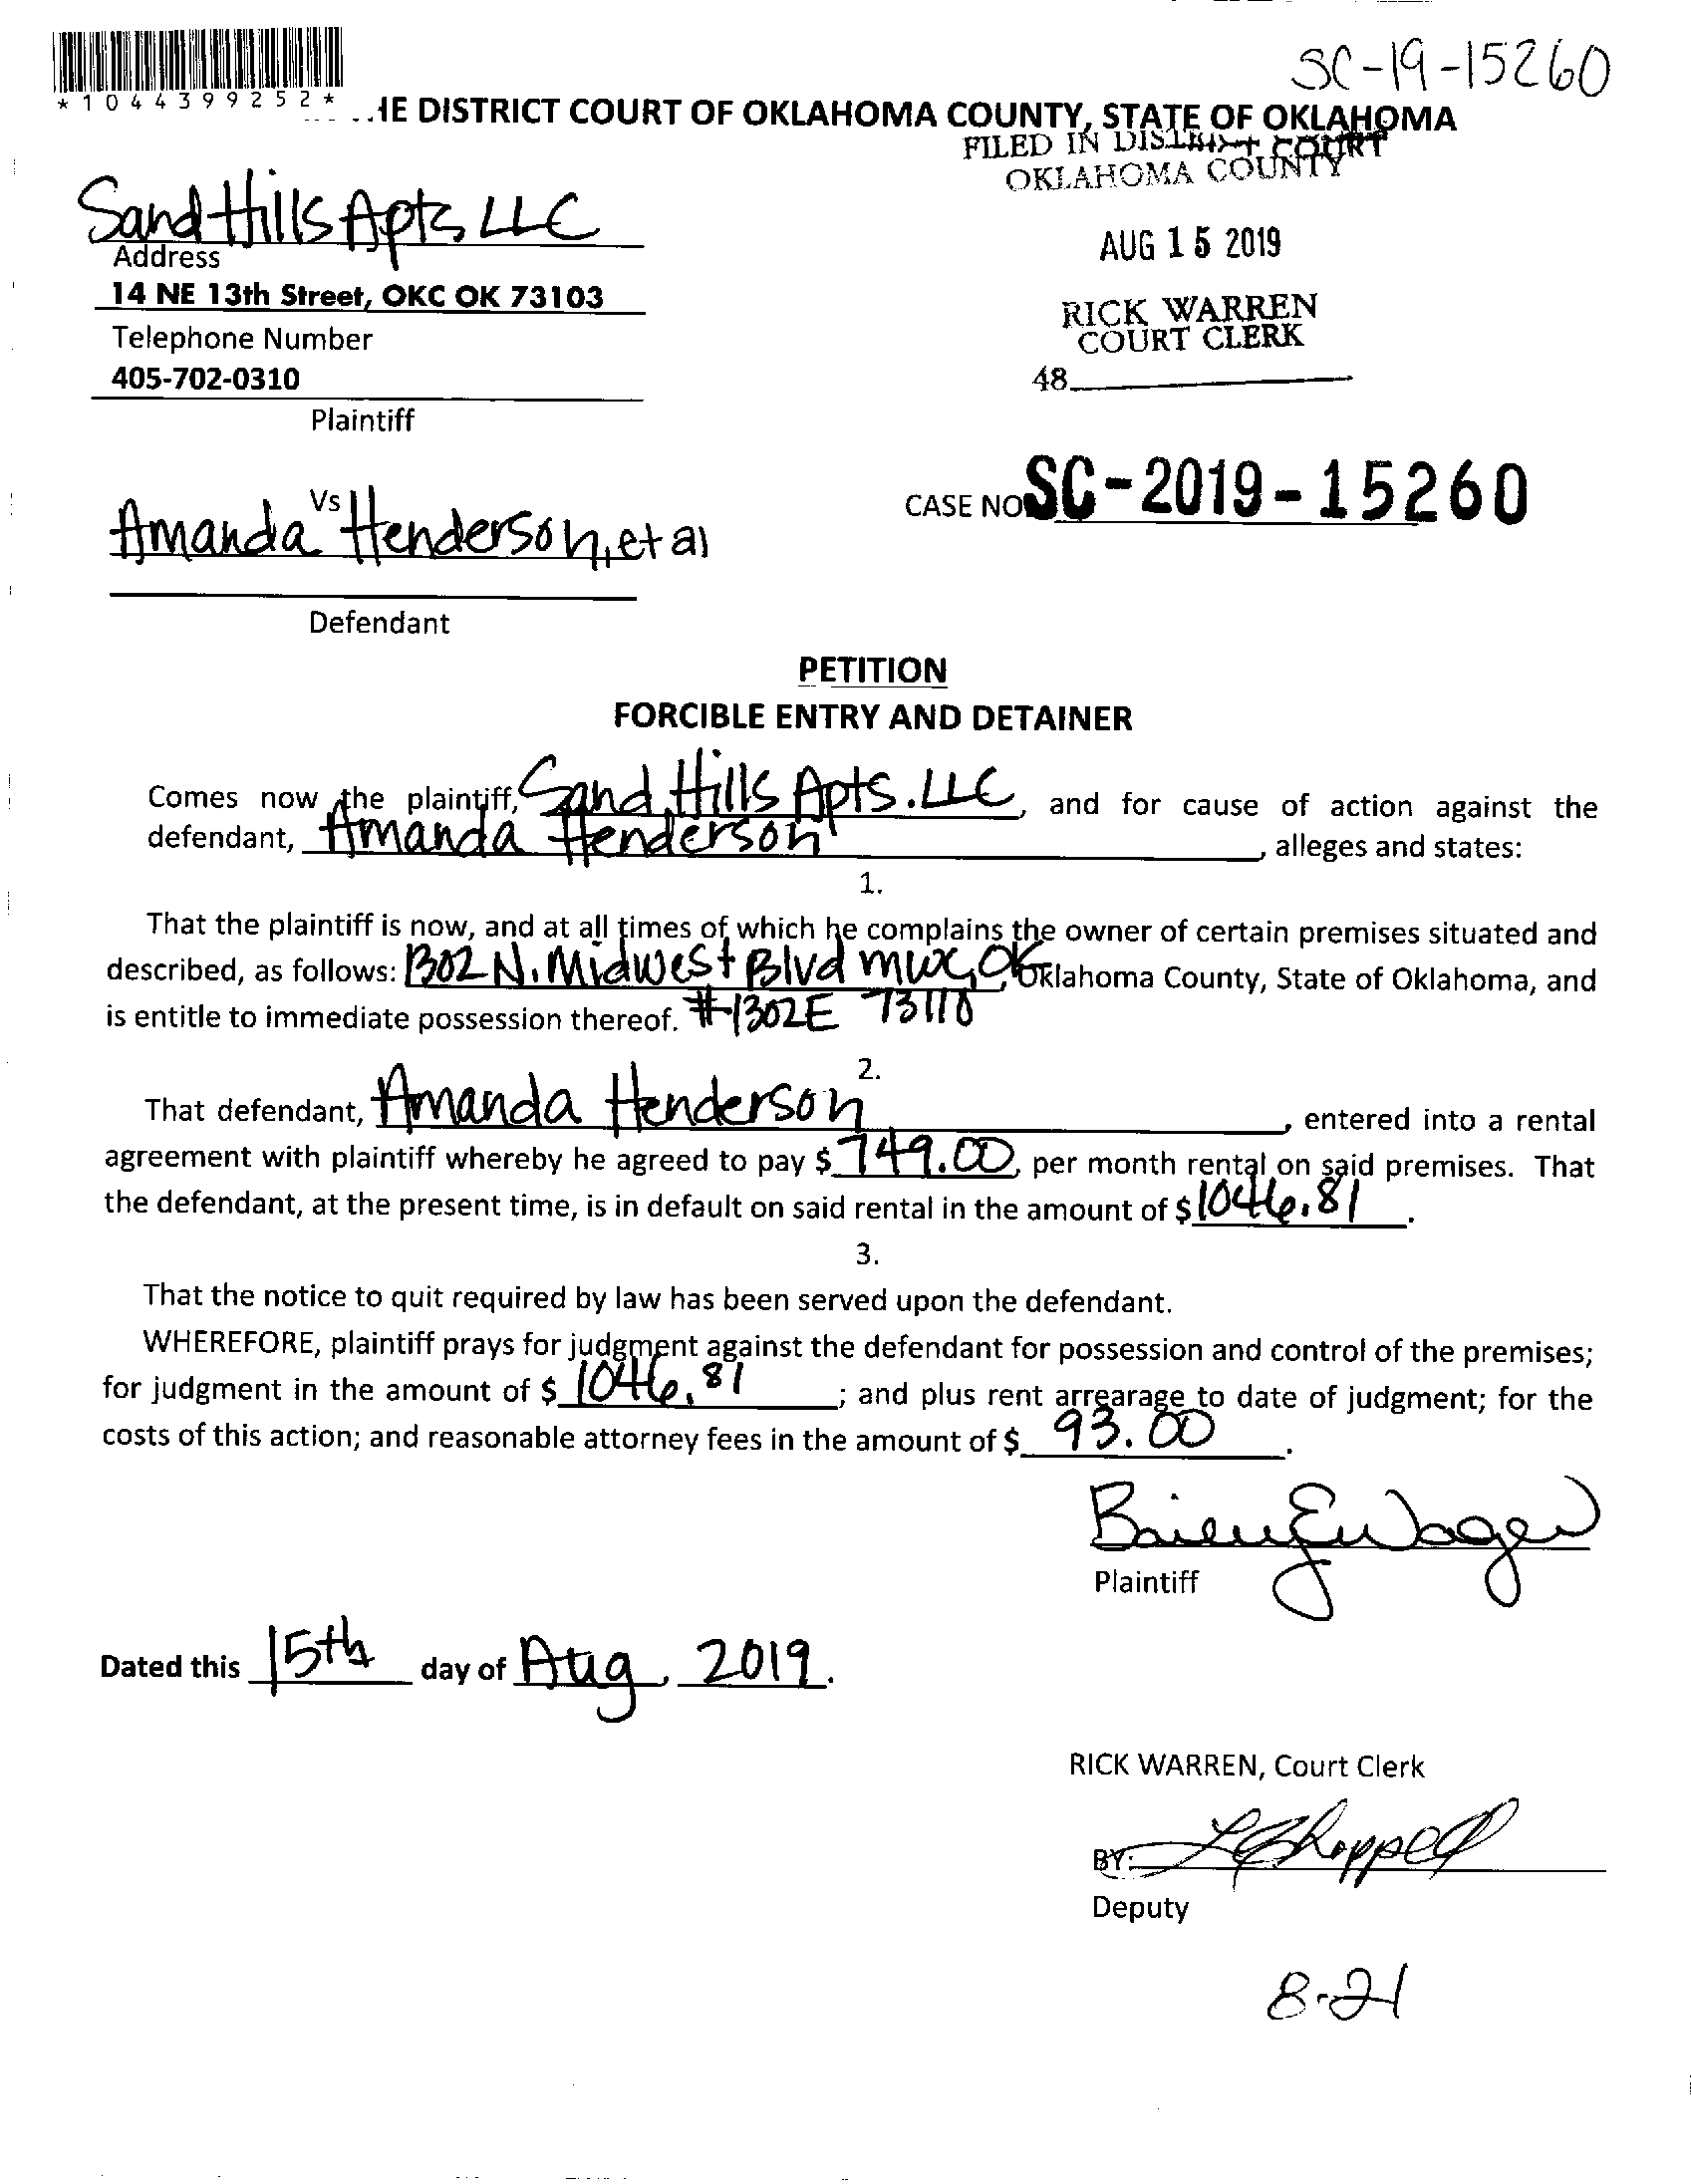 SC-19-15260
*1044399252*
HE DISTRICT COURT OF OKLAHOMA COUNTY, STATE OF OKLAHOMA
FILED IN DISTRICT COURT
OKLAHOMA COUNTY
Sand Hills Apts LLC
Address
AUG 15 2019
14 NE 13th Street, OKC OK 73103
RICK WARREN
Telephone Number
COURT CLERK
405-702-0310
48
Plaintiff
Vs
CASE NO SC-2019-15260
Amanda Henderson, et al
Defendant
PETITION
FORCIBLE ENTRY AND DETAINER
Comes now the plaintiff, Sand Hills Apts. LLC, and for cause of action against the
defendant, Amanda Henderson, alleges and states:
1.
That the plaintiff is now, and at all times of which he complains the owner of certain premises situated and
described, as follows: 1302 N. Midwest Blvd mwc, OK, Oklahoma County, State of Oklahoma, and
is entitle to immediate possession thereof. #1302E 73110
2.
That defendant, Amanda Henderson, entered into a rental
agreement with plaintiff whereby he agreed to pay $ 749.00, per month rental on said premises. That
the defendant, at the present time, is in default on said rental in the amount of $ 1046.81.
3.
That the notice to quit required by law has been served upon the defendant.
WHEREFORE, plaintiff prays for judgment against the defendant for possession and control of the premises;
for judgment in the amount of $ 1046.81; and plus rent arrearage to date of judgment; for the
costs of this action; and reasonable attorney fees in the amount of $ 93.00.
Plaintiff
Dated this 15th day of Aug, 2019.
RICK WARREN, Court Clerk
BY:
Deputy
8-21